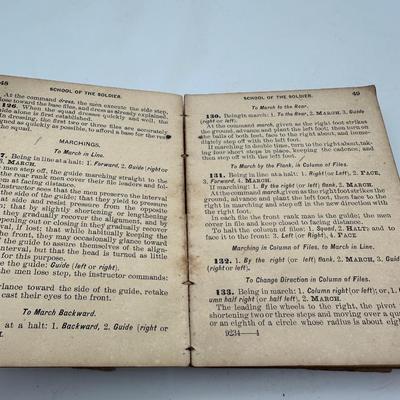 48
SCHOOL OF THE SOLDIER.
At the command dress, the men execute the side step,
close toward the base files, and dress as already explained.
126. When the squad dresses quickly and well, the
whole alone is first established.
In dressing, the first two or three files are accurately
as possible, to afford a base for the rest
of the squad.
MARCHINGS.
To March in Line.
7. Being in line at a halt: 1. Forward, 2. Guide (right
3. MARCH.
men step off, the guide marching straight to the
the rear rank men cover their file leaders and fol-
at facing distance.
instructor sees that the men preserve the interval
side of the guide; that they yield to pressure
that side and resist pressure from the opposite
that by slightly shortening or lengthening
they gradually recover the alignment, and by
opening out or closing in they gradually recover
interval, if lost; that while habitually keeping the
to the front, they may occasionally glance toward
the guide to assure themselves of the align-
interval, but that the head is turned as little
for this purpose.
the guide: Guide (left or right).
men lose step, the instructor commands:
glance toward the side of the guide, retake
cast their eyes to the front.
To March Backward.
at a halt: 1. Backward, 2. Guide (right or
SCHOOL OF THE SOLDIER.
49
To March to the Rear.
130. Being in march: 1. To the Rear, 2. MARCH, 3. Guide
(right or left).
At the command march, given as the right foot strikes
the ground, advance and plant the left foot; then turn on
the balls of both feet, face to the right about, and imme-
diately step off with the left foot.
If marching in double time, turn to the right about, tak-
ing four short steps in place, keeping the cadence, and
then step off with the left foot.
To March by the Flank, in Column of Files.
131. Being at a halt: 1. Right (or Left), 2. FACE,
3. Forward, 4. MARCH.
If marching: 1. By the right (or left) flank, 2. MARCH.
At the command march, given as the right foot strikes
the ground, advance and plant the left foot, then face to the
right in marching and step off in the new direction with the
right foot.
In each file the front rank man is the guide; the men
cover in file and keep closed to facing distance.
To halt the column of files: 1. Squad, 2. HALT; and to
face it to the front: 3. Left (or Right), 4. FACE.
Marching in Column of Files, to March in Line.
132. 1. By the right (or left) flank, 2. MARCH, 3. Guide
(right or left).
To Change Direction in Column of Files.
133. Being in march: 1. Column right (or left); or, 1. Col-
umn half right (or half left), 2. MARCH.
The leading file wheels to the right, the pivot man
shortening two or three steps and moving over a quarter
or an eighth of a circle whose radius is about eight
9234——4